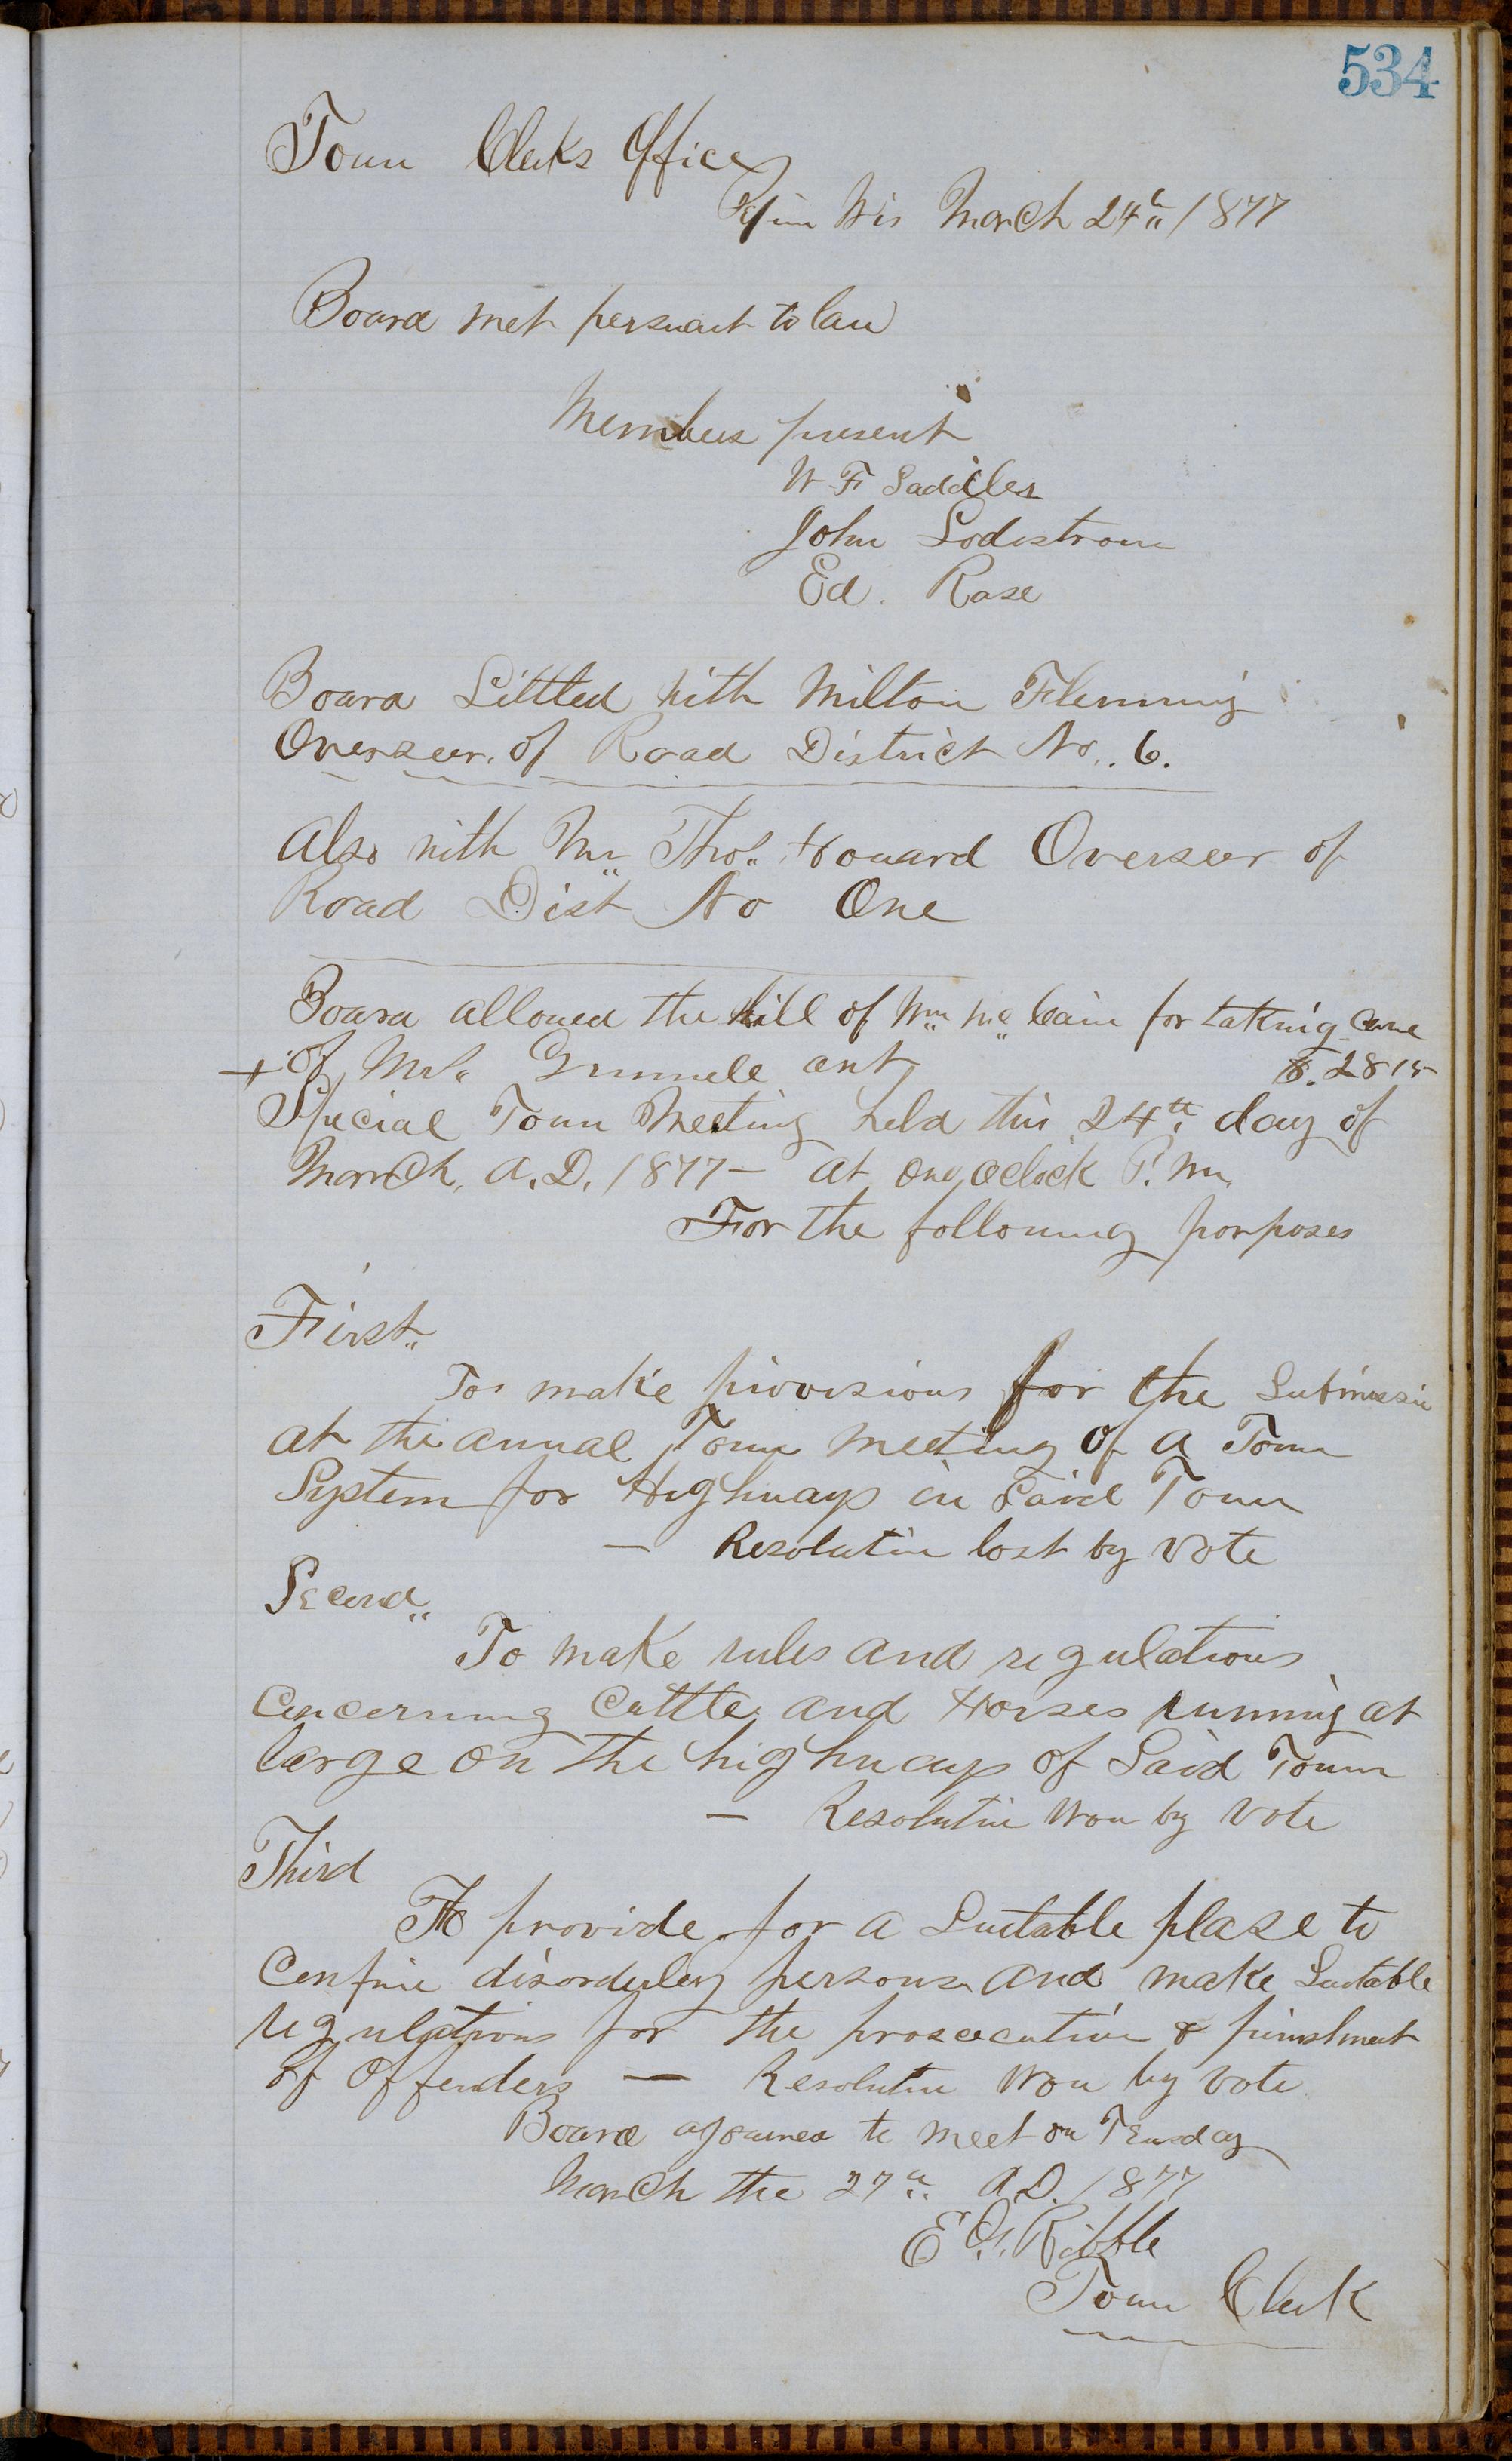 534
Town Clerks Office
Pepin Wis March 24th 1877
Board met persuant to law
Members present
W F Saddler
John Lodestrom
Ed. Rose
Board Sittled with Milton Flemming
Overseer of Road District No. 6.
Also with Mr Thos. Howard Overseer of
Road Dist No One
Board allowed the bill of Wm Mc Cain for taking care
+ of Mrs Grinnele amt $.28 15
Special Town Meeting held this 24th day of
March, A.D. 1877 - at one, oclock P.M.
For the following porposes
First..
To make provisions for the Submissin
at the annual Town Meeting of a Town
System for Highways in Said Town
- Resolution lost by vote
Second..
To make rules and regulations
Concerning Cattle and Horses running at
large on the highways of Said Town
- Resolution Won by Vote
Third
To provide for a Suitable plase to
Confine disorderley persons and make Suitable
regulations for the prosecution & punishment
of Offenders - Resolution Won by Vote
Board ajourned to meet on Teusday
March the 27th A.D. 1877
E. Ribble
Town Clerk